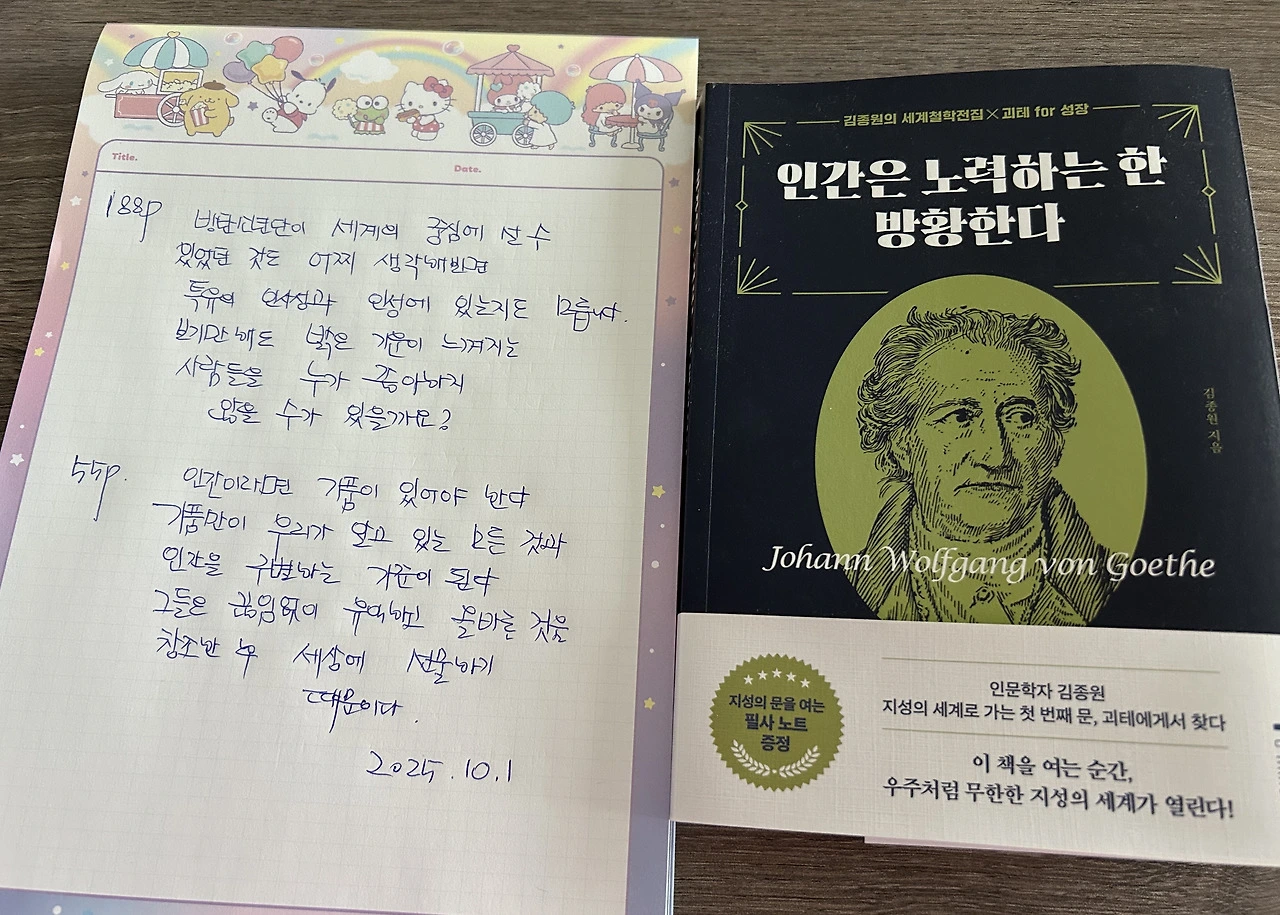 Title.
Date.
188p
방탄소년단이 세계의 중심에 설 수
있었던 것도 어찌 생각해보면
특유의 인사성과 인성에 있는지도 모릅니다.
보기만 해도 밝은 기운이 느껴지는
사람들을 누가 좋아하지
않을 수가 있을까요?
55p.
인간이라면 기품이 있어야 한다
기품만이 우리가 알고 있는 모든 것과
인간을 구별하는 기준이 된다
그들은 끊임없이 유익하고 올바른 것을
창조한 후 세상에 선물하기
때문이다.
2025.10.1
김종원의 세계철학전집×괴테 for 성장
인간은 노력하는 한
방황한다
김종원 지음
Johann Wolfgang von Goethe
지성의 문을 여는
필사 노트
증정
인문학자 김종원
지성의 세계로 가는 첫 번째 문, 괴테에게서 찾다
이 책을 여는 순간,
우주처럼 무한한 지성의 세계가 열린다!